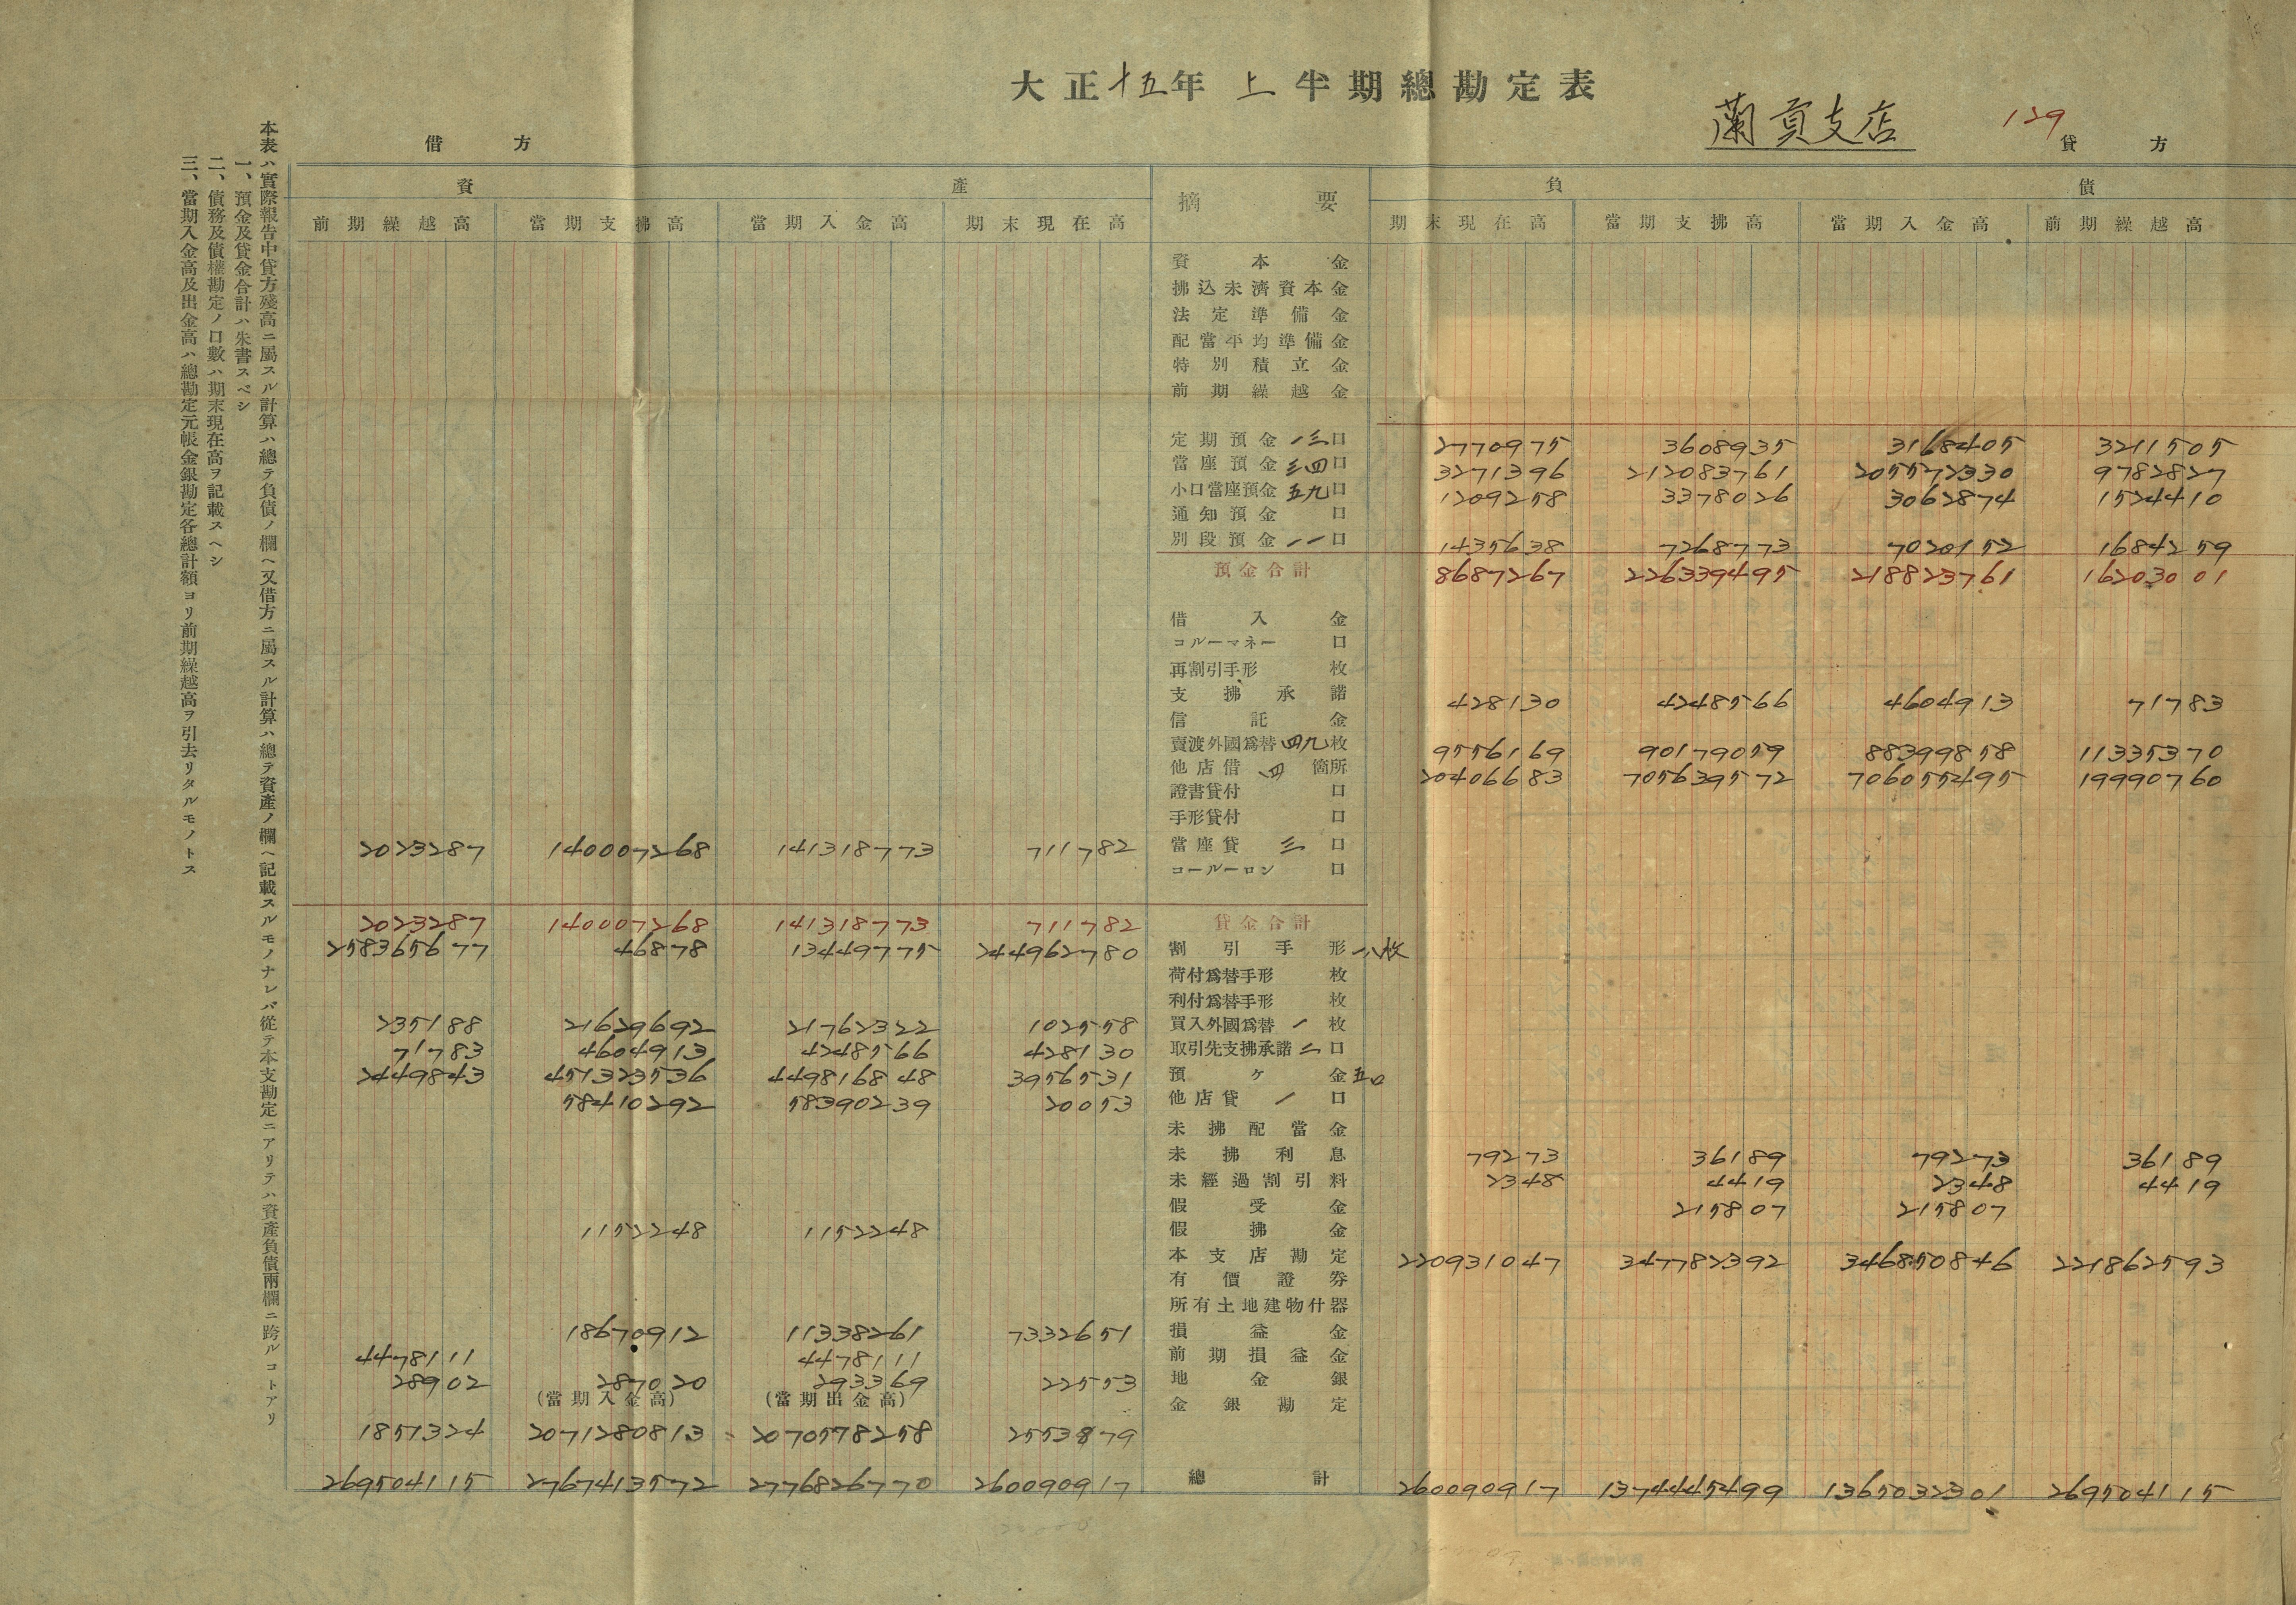 大正十五年 上 半期總勘定表
蘭貢支店 129
借方 貸方
資產 摘要 負債
前期繰越高 當期支拂高 當期入金高 期末現在高 期末現在高 當期支拂高 當期入金高 前期繰越高
資本金
拂込未濟資本金
法定準備金
配當平均準備金
特別積立金
前期繰越金
定期預金 一三口 2770975 3608935 3168405 3211505
當座預金 三四口 3271396 212083761 205572330 9782827
小口當座預金 五九口 1209258 3378026 3062874 1524410
通知預金 口
別段預金 一一口 1435638 7268773 7020152 1684259
預金合計 8687267 226339495 218823761 16203001
借入金
コルーマネー 口
再割引手形 枚
支拂承諾 428130 4248566 4604913 71783
信託金
賣渡外國爲替 四九枚 9556169 90179059 88399858 11335370
他店借 四 箇所 20406683 705639572 706055495 19990760
證書貸付 口
手形貸付 口
2023287 140007268 141318773 711782 當座貸 三 口
コールーロン 口
2023287 140007268 141318773 711782 貸金合計
258365677 46878 13449775 244962780 割引手形 一八枚
荷付爲替手形 枚
利付爲替手形 枚
235188 21629692 21762322 102558 買入外國爲替 一 枚
71783 4604913 4248566 428130 取引先支拂承諾 二 口
2449843 451323536 449816848 3956531 預ケ金 五口
58410292 58390239 20053 他店貸 一 口
未拂配當金
未拂利息 79273 36189 79273 36189
未經過割引料 2348 4419 2348 4419
假受金 215807 215807
1152248 1152248 假拂金
本支店勘定 220931047 347782392 346850846 221862593
有價證券
所有土地建物什器
18670912 11338261 7332651 損益金
4478111 4478111 前期損益金
28902 287020 293369 22553 地金銀
(當期入金高) (當期出金高) 金銀勘定
1851324 2071280813 2070578258 2553879
269504115 2767413572 2776826770 260090917 總計 260090917 1374445499 1365032301 269504115
本表ハ實際報告中貸方殘高ニ屬スル計算ハ總テ負債ノ欄ヘ又借方ニ屬スル計算ハ總テ資產ノ欄ヘ記載スルモノナレバ從テ本支勘定ニアリテハ資產負債兩欄ニ跨ルコトアリ
一、預金及貸金合計ハ朱書スベシ
二、債務及債權勘定ノ口數ハ期末現在高ヲ記載スヘシ
三、當期入金高及出金高ハ總勘定元帳金銀勘定各總計額ヨリ前期繰越高ヲ引去リタルモノトス